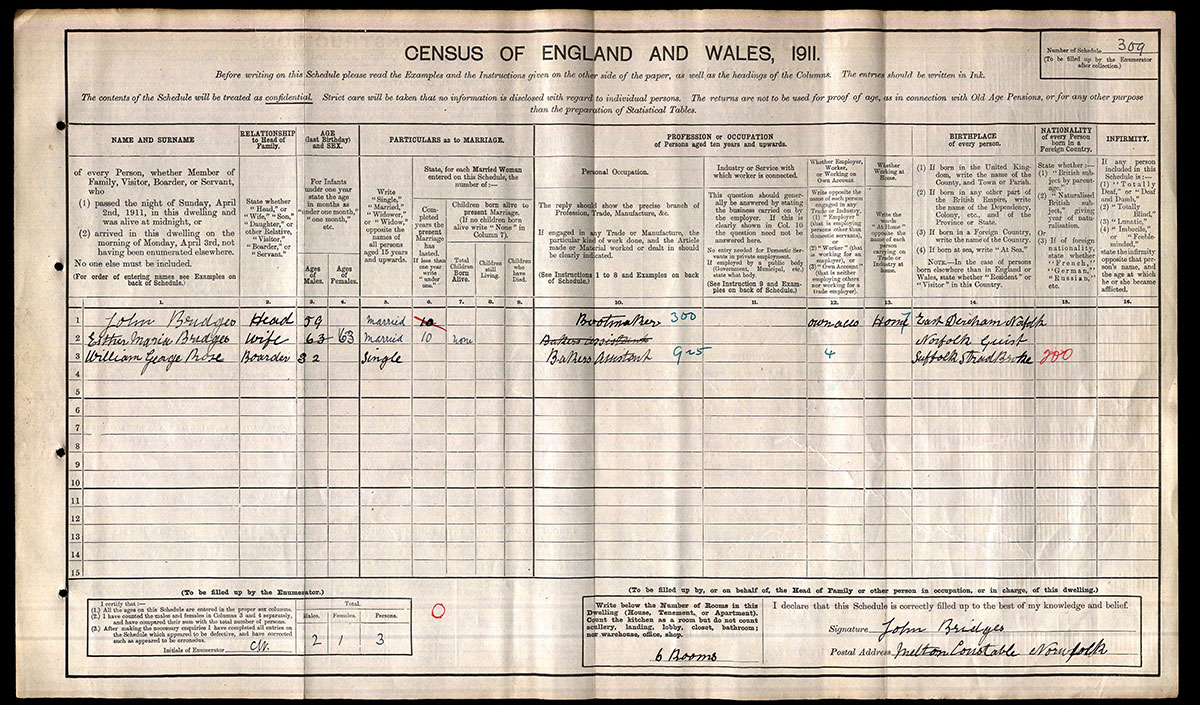 CENSUS OF ENGLAND AND WALES, 1911.
Number of Schedule 309
(To be filled up by the Enumerator
after collection.)
Before writing on this Schedule please read the Examples and the Instructions given on the other side of the paper, as well as the headings of the Columns. The entries should be written in Ink.
The contents of the Schedule will be treated as confidential. Strict care will be taken that no information is disclosed with regard to individual persons. The returns are not to be used for proof of age, as in connection with Old Age Pensions, or for any other purpose
than the preparation of Statistical Tables.
NAME AND SURNAME
of every Person, whether Member of
Family, Visitor, Boarder, or Servant,
who
(1) passed the night of Sunday, April
2nd, 1911, in this dwelling and
was alive at midnight, or
(2) arrived in this dwelling on the
morning of Monday, April 3rd, not
having been enumerated elsewhere.
No one else must be included.
(For order of entering names see Examples on
back of Schedule.)
RELATIONSHIP
to Head of
Family.
State whether
"Head," or
"Wife," "Son,"
"Daughter," or
other Relative,
"Visitor,"
"Boarder," or
"Servant."
AGE
(last Birthday)
and SEX.
For Infants
under one year
state the age
in months as
"under one month,"
"one month,"
etc.
Ages
of
Males.
Ages
of
Females.
PARTICULARS as to MARRIAGE.
Write
"Single,"
"Married,"
"Widower,"
or "Widow,"
opposite the
names of
all persons
aged 15 years
and upwards.
State, for each Married Woman
entered on this Schedule, the
number of:—
Com-
pleted
years the
present
Marriage
has
lasted.
If less than
one year
write
"under
one."
Children born alive to
present Marriage.
(If no children born
alive write "None" in
Column 7).
Total
Children
Born
Alive.
Children
still
Living.
Children
who
have
Died.
PROFESSION or OCCUPATION
of Persons aged ten years and upwards.
Personal Occupation.
The reply should show the precise branch of
Profession, Trade, Manufacture, &c.
If engaged in any Trade or Manufacture, the
particular kind of work done, and the Article
made or Material worked or dealt in should
be clearly indicated.
(See Instructions 1 to 8 and Examples on back
of Schedule.)
Industry or Service with
which worker is connected.
This question should gener-
ally be answered by stating
the business carried on by
the employer. If this is
clearly shown in Col. 10
the question need not be
answered here.
No entry needed for Domestic Ser-
vants in private employment.
If employed by a public body
(Government, Municipal, etc.)
state what body.
(See Instruction 9 and Exam-
ples on back of Schedule.)
Whether Employer,
Worker,
or Working on
Own Account
Write opposite the
name of each person
engaged in any
Trade or Industry,
(1) "Employer"
(that is employing
persons other than
domestic servants),
or
(2) "Worker" (that
is working for an
employer), or
(3) "Own Account"
(that is neither
employing others
nor working for a
trade employer).
Whether
Working at
Home.
Write the
words
"At Home"
opposite the
name of each
person
carrying on
Trade or
Industry at
home.
BIRTHPLACE
of every person.
(1) If born in the United King-
dom, write the name of the
County, and Town or Parish.
(2) If born in any other part of
the British Empire, write
the name of the Dependency,
Colony, etc., and of the
Province or State.
(3) If born in a Foreign Country,
write the name of the Country.
(4) If born at sea, write "At Sea."
NOTE.—In the case of persons
born elsewhere than in England or
Wales, state whether "Resident" or
"Visitor" in this Country.
NATIONALITY
of every Person
born in a
Foreign Country.
State whether:—
(1) "British sub-
ject by parent-
age."
(2) "Naturalised
British sub-
ject," giving
year of natu-
ralisation.
Or
(3) If of foreign
nationality,
state whether
"French,"
"German,"
"Russian,"
etc.
INFIRMITY.
If any person
included in this
Schedule is:—
(1) "Totally
Deaf," or "Deaf
and Dumb,"
(2) "Totally
Blind,"
(3) "Lunatic,"
(4) "Imbecile,"
or "Feeble-
minded,"
state the infirmity
opposite that per-
son's name, and
the age at which
he or she became
afflicted.
1. 2. 3. 4. 5. 6. 7. 8. 9. 10. 11. 12. 13. 14. 15. 16.
1 John Bridges Head 59 Married 10 Bootmaker 300 own acco Home 7 East Dereham Norfolk
2 Esther Maria Bridges Wife 63 63 Married 10 None Bakers Assistant Norfolk Guist
3 William George Boarder 32 Single Bakers Assistant 4 Suffolk StradBroke 200
4
5
6
7
8
9
10
11
12
13
14
15
(To be filled up by the Enumerator.)
I certify that:—
(1.) All the ages on this Schedule are entered in the proper sex columns.
(2.) I have counted the males and females in Columns 3 and 4 separately,
and have compared their sum with the total number of persons.
(3.) After making the necessary enquiries I have completed all entries on
the Schedule which appeared to be defective, and have corrected
such as appeared to be erroneous.
Initials of Enumerator
Total.
Males. Females. Persons.
2 1 3
0
(To be filled up by, or on behalf of, the Head of Family or other person in occupation, or in charge, of this dwelling.)
Write below the Number of Rooms in this
Dwelling (House, Tenement, or Apartment).
Count the kitchen as a room but do not count
scullery, landing, lobby, closet, bathroom;
nor warehouse, office, shop.
6 Rooms
I declare that this Schedule is correctly filled up to the best of my knowledge and belief.
Signature John Bridges
Postal Address Melton Constable Norfolk